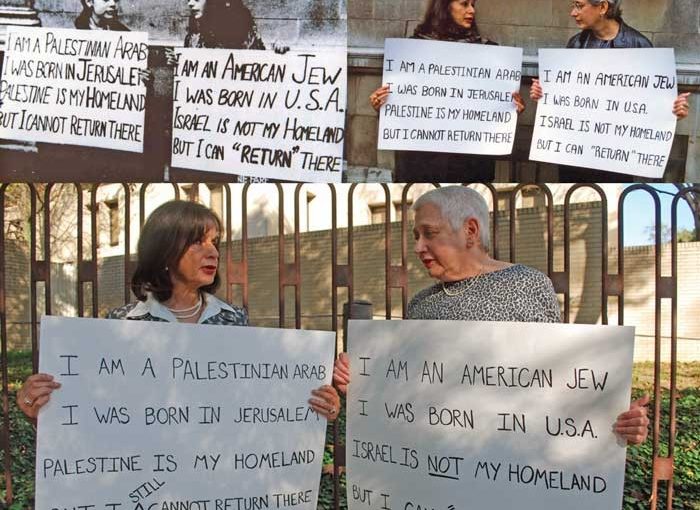 I AM A PALESTINIAN ARAB
I WAS BORN IN JERUSALEM
PALESTINE IS MY HOMELAND
BUT I CANNOT RETURN THERE
I AM AN AMERICAN JEW
I WAS BORN IN U.S.A.
ISRAEL IS NOT MY HOMELAND
BUT I CAN "RETURN" THERE
I AM A PALESTINIAN ARAB
I WAS BORN IN JERUSALEM
PALESTINE IS MY HOMELAND
BUT I CANNOT RETURN THERE
I AM AN AMERICAN JEW
I WAS BORN IN U.S.A.
ISRAEL IS NOT MY HOMELAND
BUT I CAN "RETURN" THERE
I AM A PALESTINIAN ARAB
I WAS BORN IN JERUSALEM
PALESTINE IS MY HOMELAND
BUT I STILL CANNOT RETURN THERE
I AM AN AMERICAN JEW
I WAS BORN IN U.S.A.
ISRAEL IS NOT MY HOMELAND
BUT I CAN "